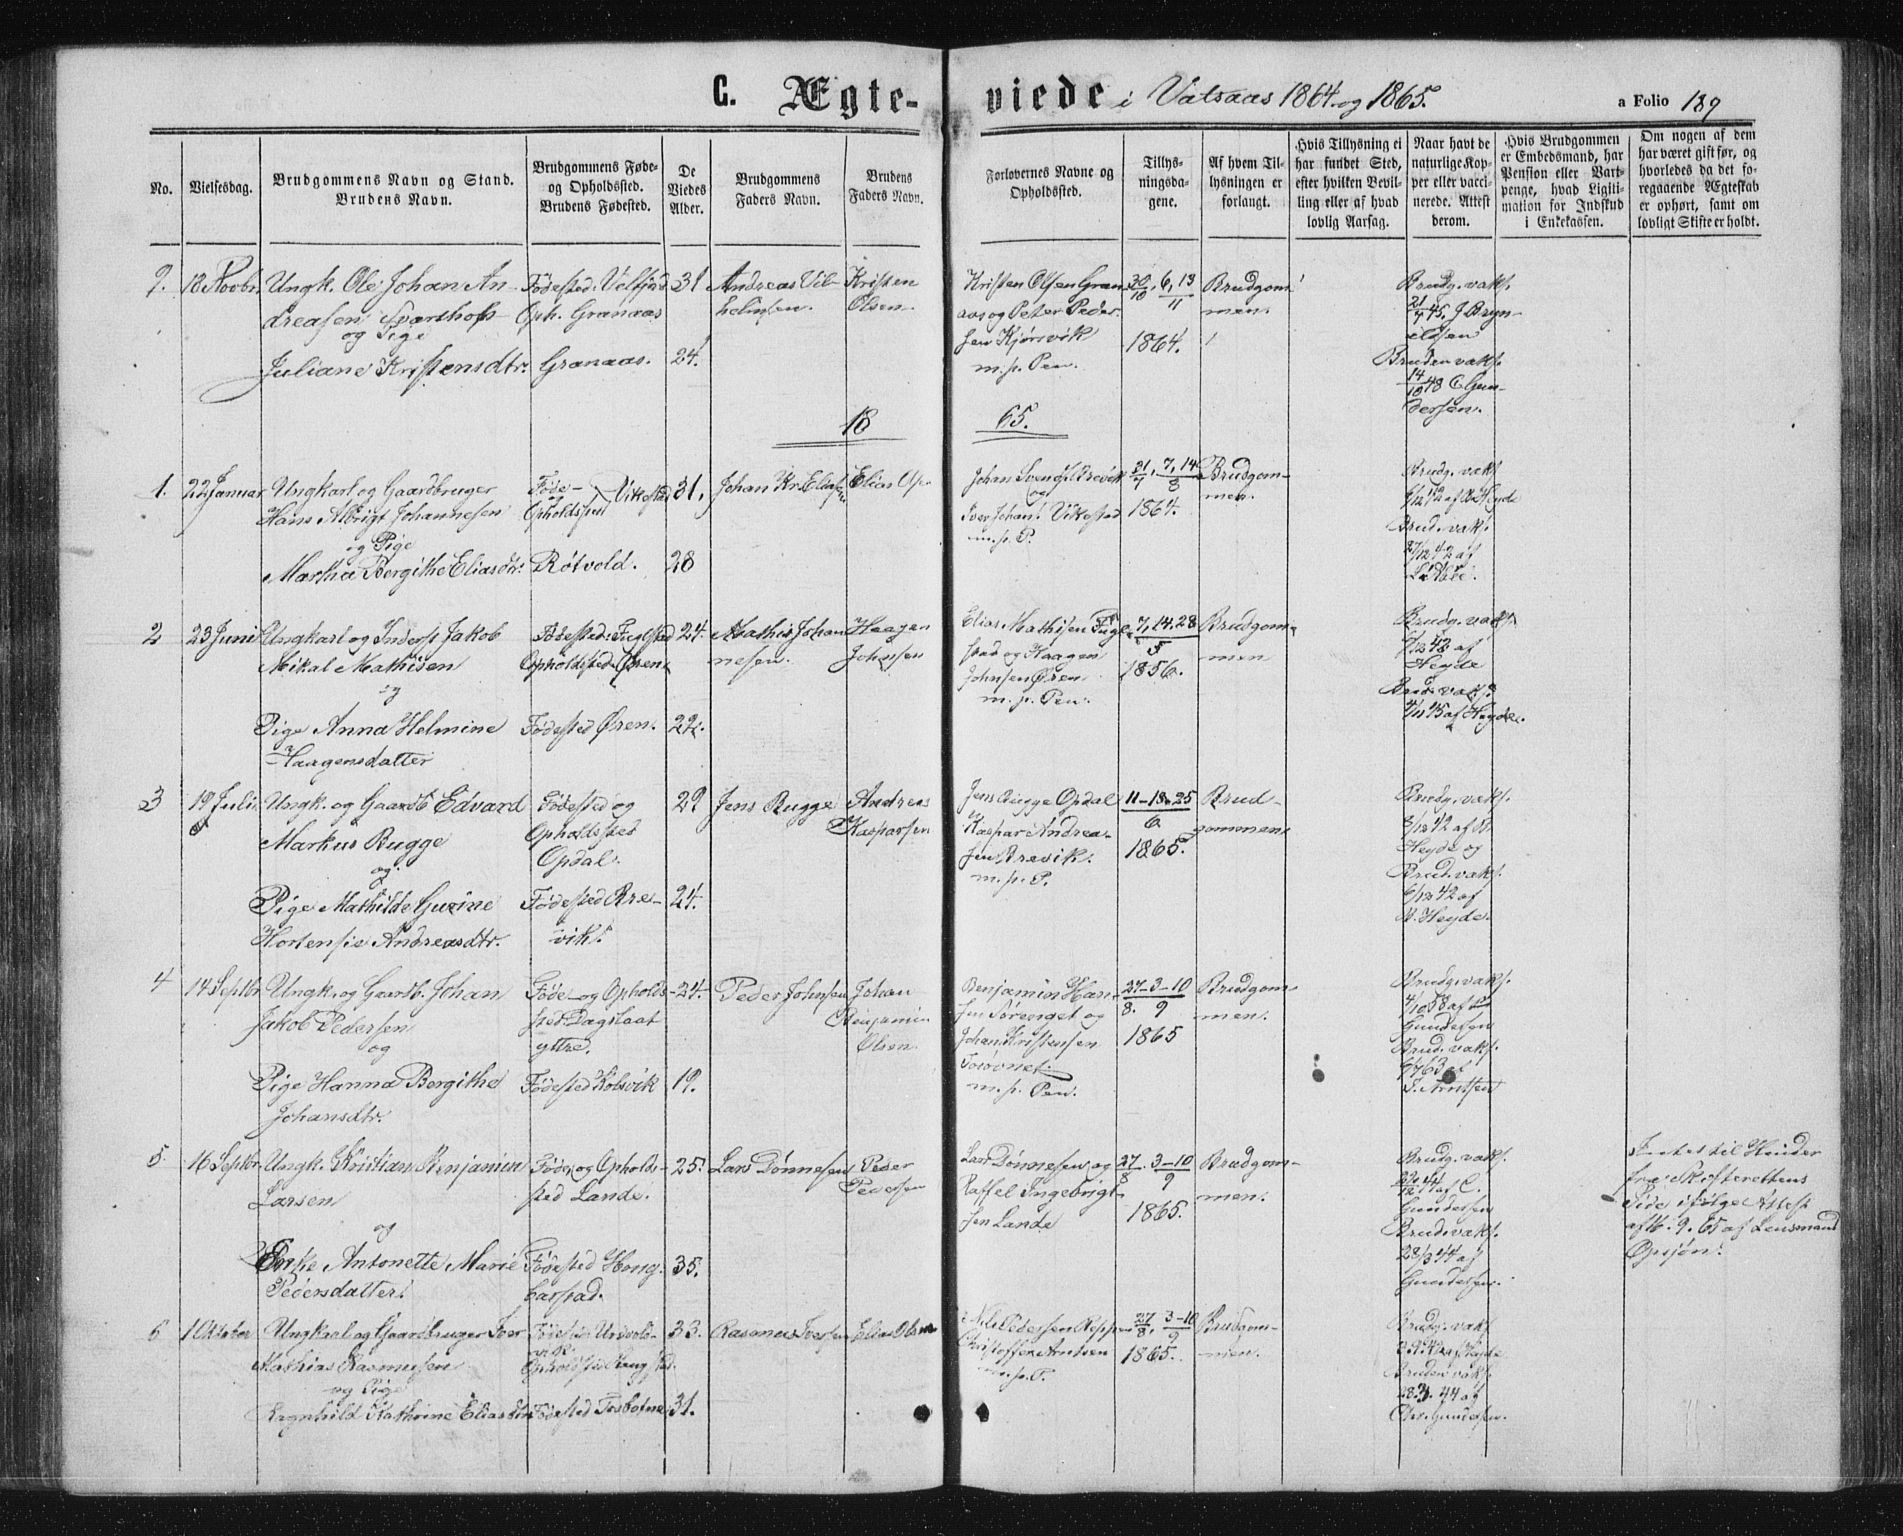 C. Ægte-
viede i Vatsaas 1864 og 1865.
a Folio 189
No.
Vielsesdag.
Brudgommens Navn og Stand.
Brudens Navn.
Brudgommens Føde-
og Opholdssted.
Brudens Fødested.
De
Viedes
Alder.
Brudgommens
Faders Navn.
Brudens
Faders Navn.
Forlovernes Navne og
Opholdssted.
Tillys-
ningsda-
gene.
Af hvem Til-
lysningen er
forlangt.
Hvis Tillysning ei
har fundet Sted,
efter hvilken Bevil-
ling eller af hvad
lovlig Aarsag.
Naar havt de
naturlige Kop-
per eller vacci-
nerede. Attest
derom.
Hvis Brudgommen
er Embedsmand, har
Pension eller Vart-
penge, hvad Ligiti-
mation for Indskud
i Enkekassen.
Om nogen af dem
har været gift før, og
hvorledes da det fo-
regaaende Ægteskab
er ophørt, samt om
lovligt Skifte er holdt.
9. 13 Novbr. Ungk. Ole Johan An-
dreasen
og Pige
Juliane Kristensdtr.
Fødested: Velfjord
Oph. Granaas
Granaas.
31
24.
Andreas Vil-
helmsen.
Kristen
Olsen.
Kristen Olsen Gran-
aas og Peter Peder-
sen Kjørsvik
m. p. Pen.
30/10, 6, 13/11
1864.
Brudgom-
men.
Brudg. vaks.
21/7 45. J Bryn-
ilsen
Bruden vaks.
14/10 48 C Gun-
dersen.
18 65.
1. 22 Januar Ungkarl og Gaardbruger
Hans Albrigt Johannesen
og Pige
Martha Bergithe Eliasdtr.
Føde-
Opholdssted Vikestad
Røtvold.
31.
28
Johan Kr. Eliasen
Elias
Johan Svends. Brevik
og
Iver Johans. Vikestad
m. p. P.
31/7, 7, 14/8
1864.
Brudgom-
men.
Brudg. vaks.
6/12 42 af Heyde
Brud. vaks.
27/12 42 af
2 23 Juni Ungkarl og Inderst Jakob
Mikal Mathisen
og
Pige Anna Helmine
Haagensdatter
Fødested: Fuglstad
Opholdssted: Øren
Fødested Øren.
24.
22.
Mathis Johan-
nesen.
Haagen
Johnsen
Elias Mathisen Fugl-
stad og Haagen
Johnsen Øren
m. p. Pen.
7, 14, 28/5
1856.
Brudgom-
men
Brudg. vaks.
6/12 42 af
Heyde
Brud. vaks.
4/11 45 af Heyde.
3 19 Juli Ungk. og Gaardb Edvard
Markus Bugge
og
Pige Mathilde Guxine
Hortensie Andreasdtr.
Fødested og
Opholdssted
Opdal.
Fødested Bre-
vik.
29
24.
Jens Bugge
Andreas
Kaspersen
Jens Bugge Opdal
Kaspar Andrea-
sen Brevik.
m. p. P.
11-18-25/6
1865.
Brud-
gommen
Brudg. vaks.
8/12 42 af
Heyde og
Brud. vaks.
6/12 42 af
Heyde.
4 14 Septbr. Ungk. og Gaardb. Johan
Jakob Pedersen
og
Pige Hanna Bergithe
Johansdtr.
Føde- og Opholds-
sted Dagslaat
yttre.
Fødested Kolsvik
24.
19.
Peder Johnsen
Johan
Benjamin
Olsen.
Benjamin Han-
sen Sørenget og
Johan Kristensen
m. p. Pen.
27-3-10
8. 9
1865
Brudgom-
men.
Brudg. vaks.
4/10 58 af
Gundersen
Brud. vaks.
9/7 63 af
Arntsen
5. 16 Septbr. Ungk. Kristian Benjamin
Larsen
og
Enke Antonette Marie
Pedersdatter.
Føde og Opholds-
sted Lande.
Fødested Hong-
barstad.
25.
35.
Lars Dønnesen
Peder
Pedersen
Lars Dønnesen og
Raffel Ingebrigt-
sen Lande
27/8. 3-10/9
1865.
Brudgom-
men.
Brudg. vaks.
af C.
Gundersen
Brud. vaks.
28/3 44 af
Gundersen.
Intet til Hinder
fra Skifterettens
Side ifølge Attest
af 16. 9. 65 af Lensmand
6 1 Oktober Ungkarl og Gaardbruger Iver
Mathias Rasmussen
og Pige
Ragnhild Kathrine Eliasdtr
Fødested Ursvold-
vik.
Fødested Tosbotnet
33.
31.
Rasmus Iversen
Elias Olsen
Nils Pedersen
Christoffer Arntsen
m. p. P.
27/8, 3-10/9
1865.
Brudgom-
men.
Brudg. vaks.
af Heyde
Bruden vaks.
44 af
Chr. Gundersen.